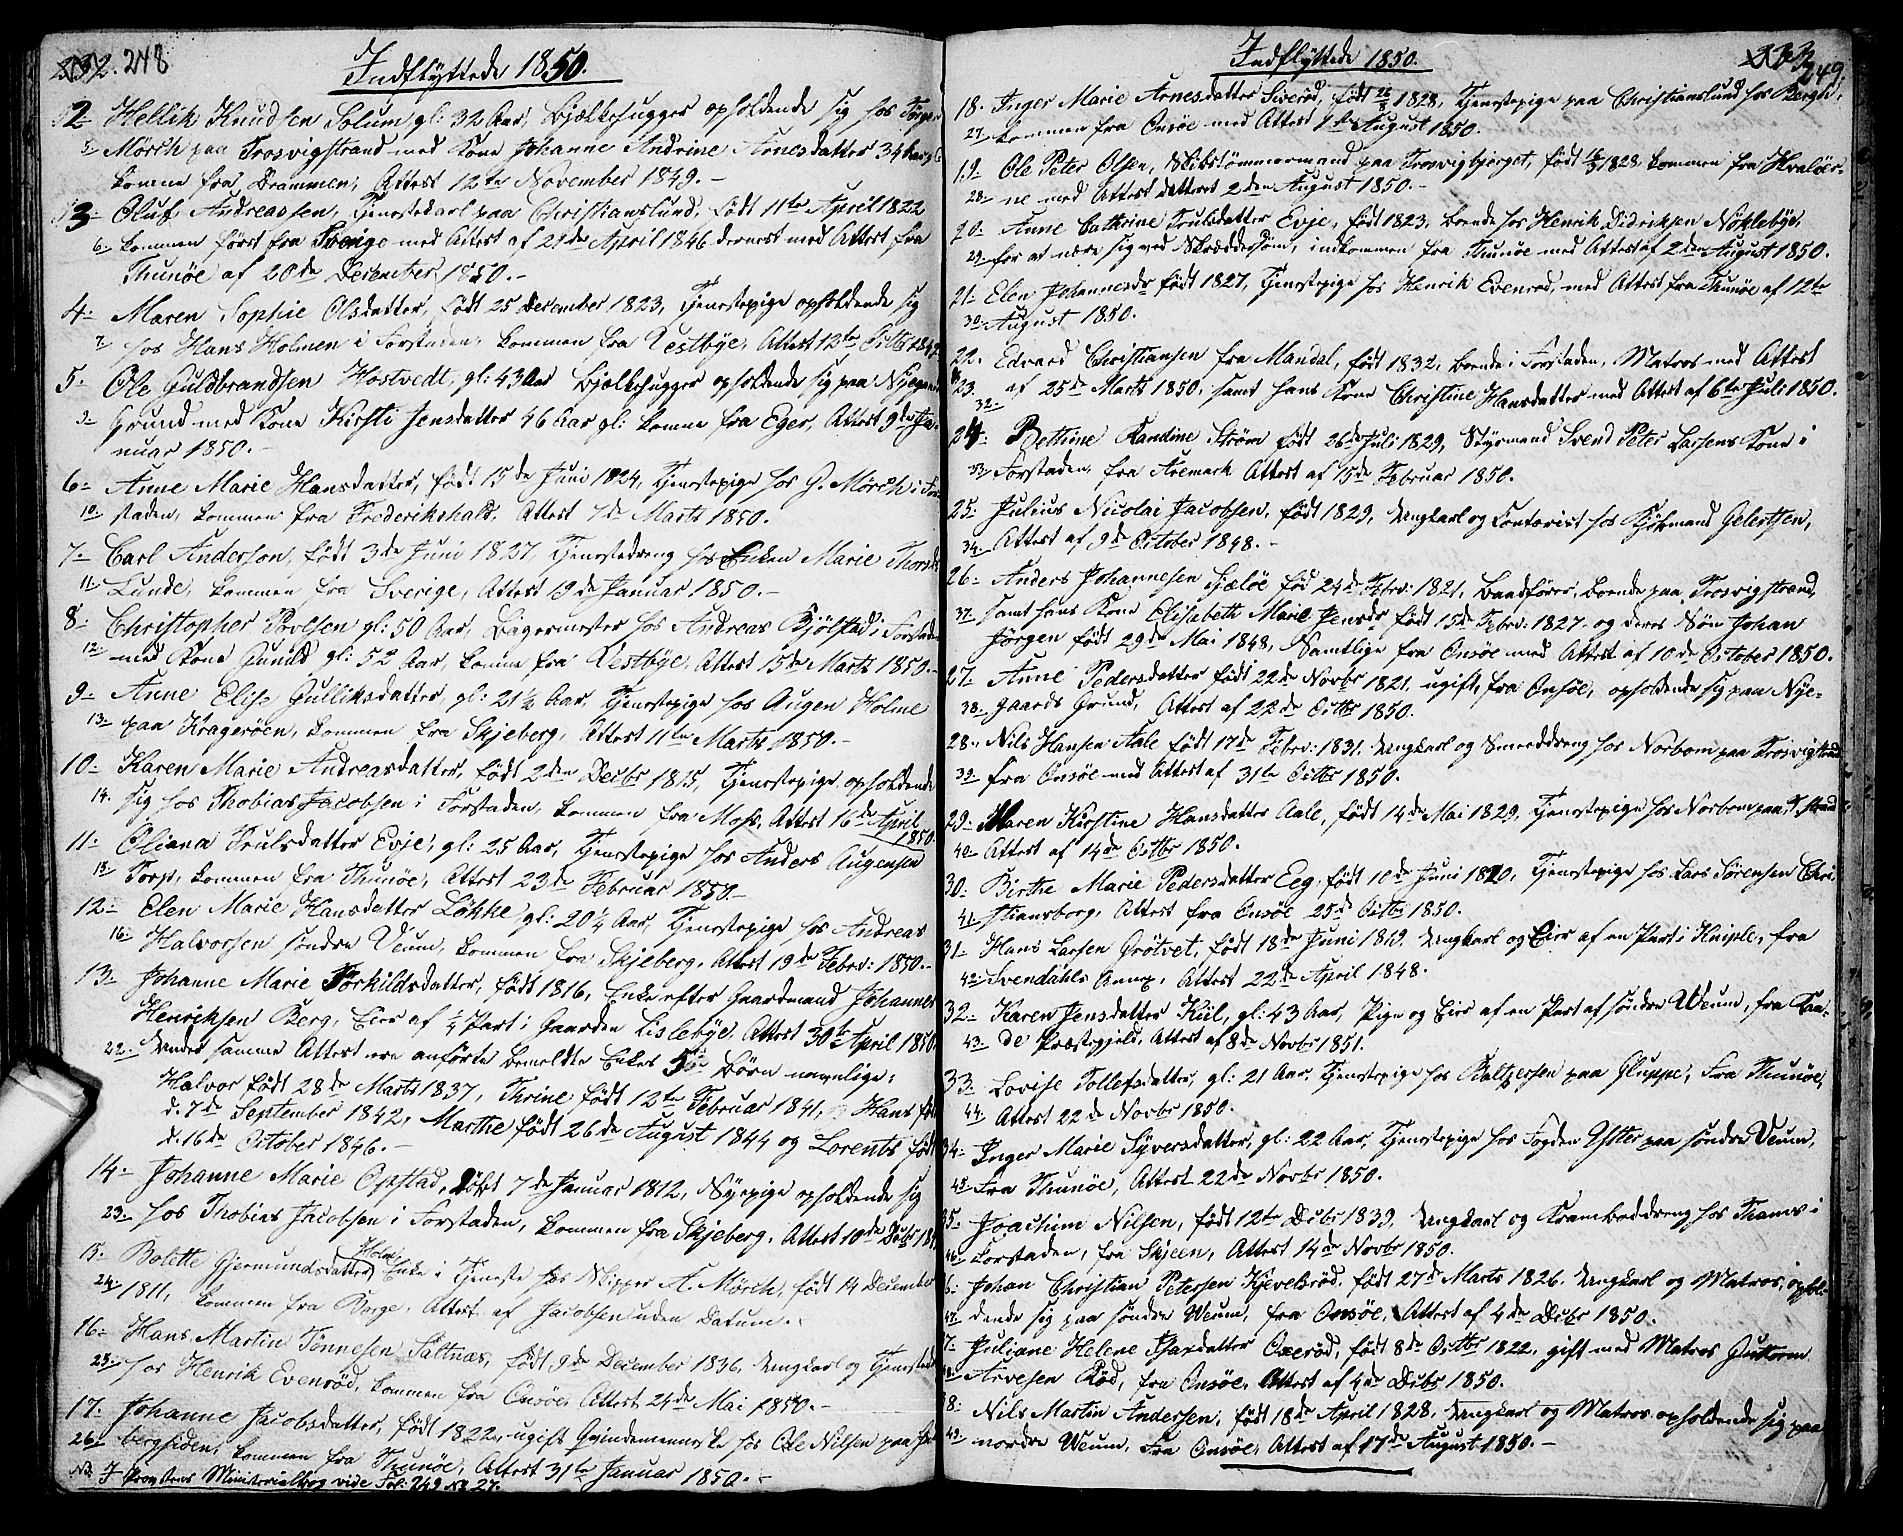 248
Indflyttede 1850.
2 Hellik Knudsen Solum gl: 32 Aar, Bjelkehugger opholdende sig hos
Mörch paa Trosvigstrand med Kone Johanne Andrine Arnesdatter 34 Aar gl:
komne fra Drammen, Attest 12te November 1849.-
3- Oluf Andreassen, Tjenestekarl paa Christianslund, født 11te April 1822
6- kommen først fra Sverige med Attest af 21de April 1846 dernæst med Attest fra
Thunöe af 20de December 1850.-
4- Maren Sophie Olsdatter, født 25 December 1823, Tjenestepige opholdende sig
7- hos Hans Holmen i Forstaden, kommen fra Vestbye, Attest 12te Octbr 1849
5- Ole Guldbrandsen Hostvedt, gl: 43 Aar Bjelkehugger opholdende sig paa Nyegaards
9- Grund med Kone Kirsti Jensdatter 46 Aar gl: komne fra Eger, Attest 9de Ja-
nuar 1850.-
6- Anne Marie Hansdatter, født 15de Juni 1824, Tjenestepige hos G. Mörch i For-
10- staden, kommen fra Frederikshald, Attest 7de Marts 1850.
7- Carl Anderson, født 3de Juni 1837, Tjenestedreng hos Enken Marie
11- Lunde, kommen fra Sverige, Attest 19de Januar 1850.-
8- Christopher Povelsen gl: 50 Aar, Bagermester hos Andreas Bjölstad i Forstaden
12- med Kone Gunild gl: 52 Aar, komne fra Vestbye, Attest 15de Marts 1850.-
9- Anne Elise Gulliksdatter, gl: 21½ Aar, Tjenestepige hos Augen Holme
13- paa Kragerøen, kommen fra Skjeberg, Attest 11te Marts 1850.-
10- Karen Marie Andreasdatter, født 2den Decbr 1815, Tjenestepige opholdende
14- sig hos Thobias Jacobsen i Forstaden, kommen fra Moss, Attest 16de April
1850.
11- Oliana Trulsdatter Evje, gl: 25 Aar, Tjenestepige hos Anders Augensen
15- Torp, kommen fra Thunöe, Attest 23de Februar 1850.-
12- Elen Marie Hansdatter Løkke, gl: 20¼ Aar, Tjenestepige hos Andreas
16- Halvorsen søndre Veum, kommen fra Skjeberg, Attest 19de Febrv: 1850.-
13- Johanne Marie Torkildsdatter, født 1816, Enke efter Gaardmand Johannes
Henriksen Berg, Eier af ¼ Part i Gaarden Lislebye, Attest 30te April 1850
22- Under samme Attest ere anførte bemeldte Enkes 5 Børn navnlige:
Halvor født 28de Marts 1837, Thrine født 12te Februar 1841, og Hans fø
d. 7de September 1842, Marthe født 26de August 1844 og Lorents født
d. 16de October 1846.-
14- Johanne Marie Opstad, født 7de Januar 1812, Sypige opholdende sig
23- hos Thobias Jacobsen i Forstaden, kommen fra Skjeberg, Attest 10de Decbr
15- Bolette Gjermundsdatter Holm, Enke i Tjeneste hos Skipper A. Mörch, født 14 December
24- 1811, kommen fra Borge, Attest af Jacobsen uden Datum.-
16- Hans Martin Tönnesen Saltnæs, født 9de December 1836, Ungkarl og Tjenestedr
25- hos Henrik Evenrød, kommen fra Onsöe, Attest 24de Mai 1850.-
17- Johanne Jacobsdatter, født 1822, ugift Qvindemenneske hos Ole Nilsen paa
26- bergsiden, kommen fra Thunöe, Attest 31te Januar 1850.-
NB. I Provstens Ministerialbog vide Fol: 249 No 27.
249.
Indflyttede 1850.
18. Inger Marie Arnesdatter Siverød, født 26/8 1828, Tjenestepige paa Christianslund hos Bergh,
27- kommen fra Onsöe med Attest 1ste August 1850.
19- Ole Peter Olsen, Skibstømmermand paa Trosvigbjerget, født 1828 kommen fra Hvaløer-
28- ne med Attest dateret 2den August 1850.-
20- Anne Cathrine Trulsdatter Evje, født 1823, boende hos Henrik Didriksen Nøklebye,
29- for at nære sig ved Skræddersøm, indkommen fra Thunöe med Attest af 2den August 1850.
21- Elen Johannesdr født 1827, Tjenestepige hos Henrik Evenrød, med Attest fra Thunöe af 12te
30- August 1850.
22- Edvard Christiansen fra Mandal, født 1832, boende i Forstaden, Matros med Attest
23. af 25de Marts 1850, samt hans Kone Christine Hansdatter med Attest af 6te Juli 1850.
32-
24- Bethine Randine Strøm født 26de Juli 1829, Styrmand Svend Peter Larsens Kone i
33- Forstaden, fra Aremark Attest af 15de Februar 1850.
25- Julius Nicolai Jacobsen, født 1829, Ungkarl og Contorist hos Kjøbmand Gelertsen,
34- Attest af 9de October 1848.-
26- Anders Johannesen Sjæløe fød 24de Febrv: 1821, Baadfører, boende paa Trosvigstrand,
37- samt hans Kone Elisabeth Marie Jensdr født 15de Febrv: 1827, og deres Søn Johan
Jörgen født 29de Mai 1848, Samtlige fra Onsöe med Attest af 10de October 1850.
27- Anne Pedersdatter født 22de Novbr 1821, ugift, fra Onsöe, opholdende sig paa Nye-
38- gaards Grund, Attest af 22de Octbr 1850.
28- Nils Hansen Aale født 17de Febrv: 1831, Ungkarl og Smeddreng hos Norbom paa Trosvigstrand
39- fra Onsöe med Attest af 31te Octbr 1850.
29- Maren Kirstine Hansdatter Aale, født 14de Mai 1829, Tjenestepige hos Norbom paa T. strand
40- Attest af 14de Octbr 1850.
30- Birthe Marie Pedersdatter Eeg, født 10de Juni 1820, Tjenestepige hos Lars Sørensen Chri-
41- stiansborg, Attest fra Onsöe 25de Octbr 1850.
31- Hans Larsen Grötvet, født 18de Juni 1819, Ungkarl og Eier af en Part i Kniple, fra
42- Svendahls Annx, Attest 22de April 1848.
32- Karen Jensdatter Kiil, gl: 43 Aar, Pige og Eier af en Part af søndre Veum, fra Raa-
43- de Præstegjeld, Attest af 8de Novbr 1851.
33- Lovise Tollefsdatter, gl: 21 Aar, Tjenestepige hos Baltzersen paa Gluppe, fra Thunöe,
44- Attest 22de Novbr 1850.
34- Inger Marie Syversdatter, gl: 22 Aar, Tjenestepige hos Fogden Ytter paa søndre Veum,
45- fra Thunöe, Attest 22de Novbr 1850.
35- Joachim Nilsen, født 12te Decbr 1839, Ungkarl og Kramboddreng hos Thams i
46- Forstaden, fra Skjeen, Attest 14de Novbr 1850.
6- Johan Christian Petersen Kjevelsröd, født 27de Marts 1826, Ungkarl og Matros, ophol-
47- dende sig paa søndre Veum, fra Onsöe, Attest af 4de Decbr 1850.
7- Juliane Helene Isaxdatter Oxerød, født 8de Octbr 1822, gift med Matros Guttorm
48- Arvesen Rød, fra Onsöe, Attest af 4de Decbr 1850.
8- Nils Martin Andersen, født 18de April 1828, Ungkarl og Matros opholdende sig paa
49- nordre Veum, fra Onsöe, Attest af 17de August 1850.-